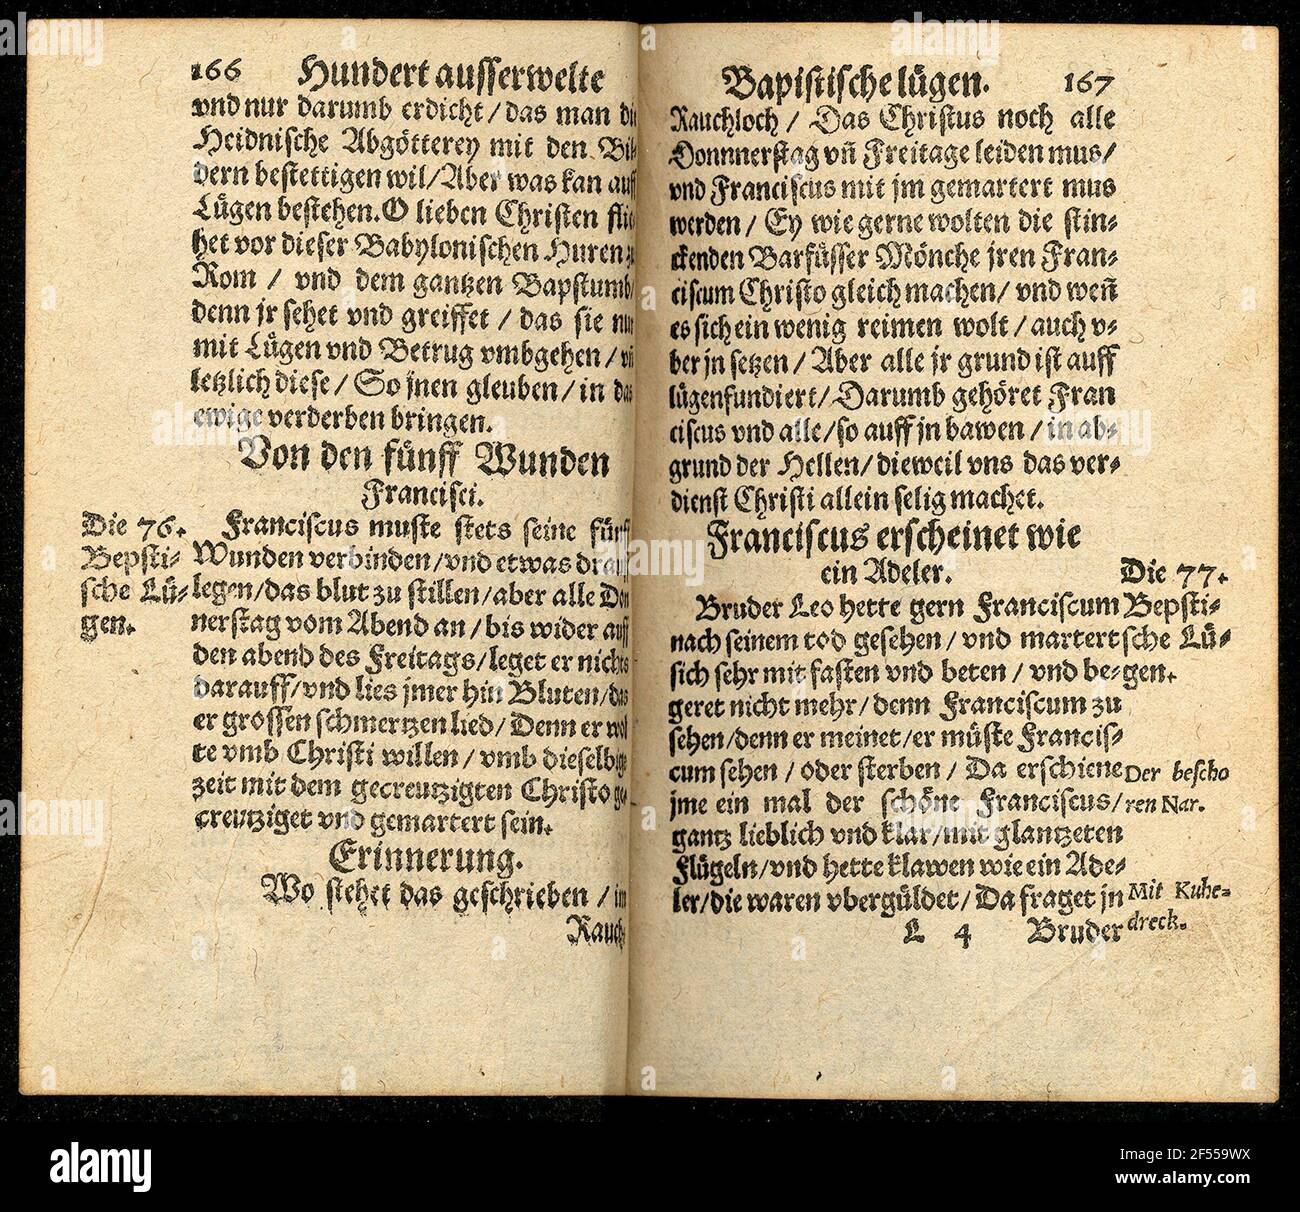 166 Hundert ausserwelte
vnd nur darumb erdicht / das man die
Heidnische Abgötterey mit den Bil-
dern bestettigen wil / Aber was kan auff
Lügen bestehen. O lieben Christen flie-
het vor dieser Babylonischen Huren zu
Rom / vnd dem gantzen Bapstumb /
denn jr sehet vnd greiffet / das sie nur
mit Lügen vnd Betrug vmbgehen / vñ
letzlich diese / So jnen gleuben / in das
ewige verderben bringen.
Von den fünff Wunden
Francisci.
Die 76.
Bepsti-
sche Lü-
gen.
Franciscus muste stets seine fünff
Wunden verbinden / vnd etwas drauff
legen / das blut zu stillen / aber alle Don
nerstag vom Abend an / bis wider auff
den abend des Freitags / leget er nichts
darauff / vnd lies jmer hin Bluten / das
er grossen schmertzen lied / Denn er wol
te vmb Christi willen / vmb dieselbige
zeit mit dem gecreutzigten Christo ge-
creutziget vnd gemartert sein.
Erinnerung.
Wo stehet das geschrieben / im
Rauch-
Bapistische lügen. 167
Rauchloch / Das Christus noch alle
Donnnerstag vñ Freitage leiden mus /
vnd Franciscus mit jm gemartert mus
werden / Ey wie gerne wolten die stin-
ckenden Barfüsser Mönche jren Fran-
ciscum Christo gleich machen / vnd weñ
es sich ein wenig reimen wolt / auch v-
ber jn setzen / Aber alle jr grund ist auff
lügen fundiert / Darumb gehöret Fran
ciscus vnd alle / so auff jn bawen / in ab-
grund der Hellen / dieweil vns das ver-
dienst Christi allein selig machet.
Franciscus erscheinet wie
ein Adeler.
Die 77.
Bepsti-
sche Lü-
gen.
Bruder Leo hette gern Franciscum
nach seinem tod gesehen / vnd martert
sich sehr mit fasten vnd beten / vnd be-
geret nicht mehr / denn Franciscum zu
sehen / denn er meinet / er müste Francis-
cum sehen / oder sterben / Da erschiene
jme ein mal der schöne Franciscus /
gantz lieblich vnd klar / mit glantzeten
Flügeln / vnd hette klawen wie ein Ade-
ler / die waren vbergüldet / Da fraget jn
Der bescho
ren Nar.
Mit Kuhe-
dreck.
L 4 Bruder
alamy
Image ID: 2F559WX
www.alamy.com